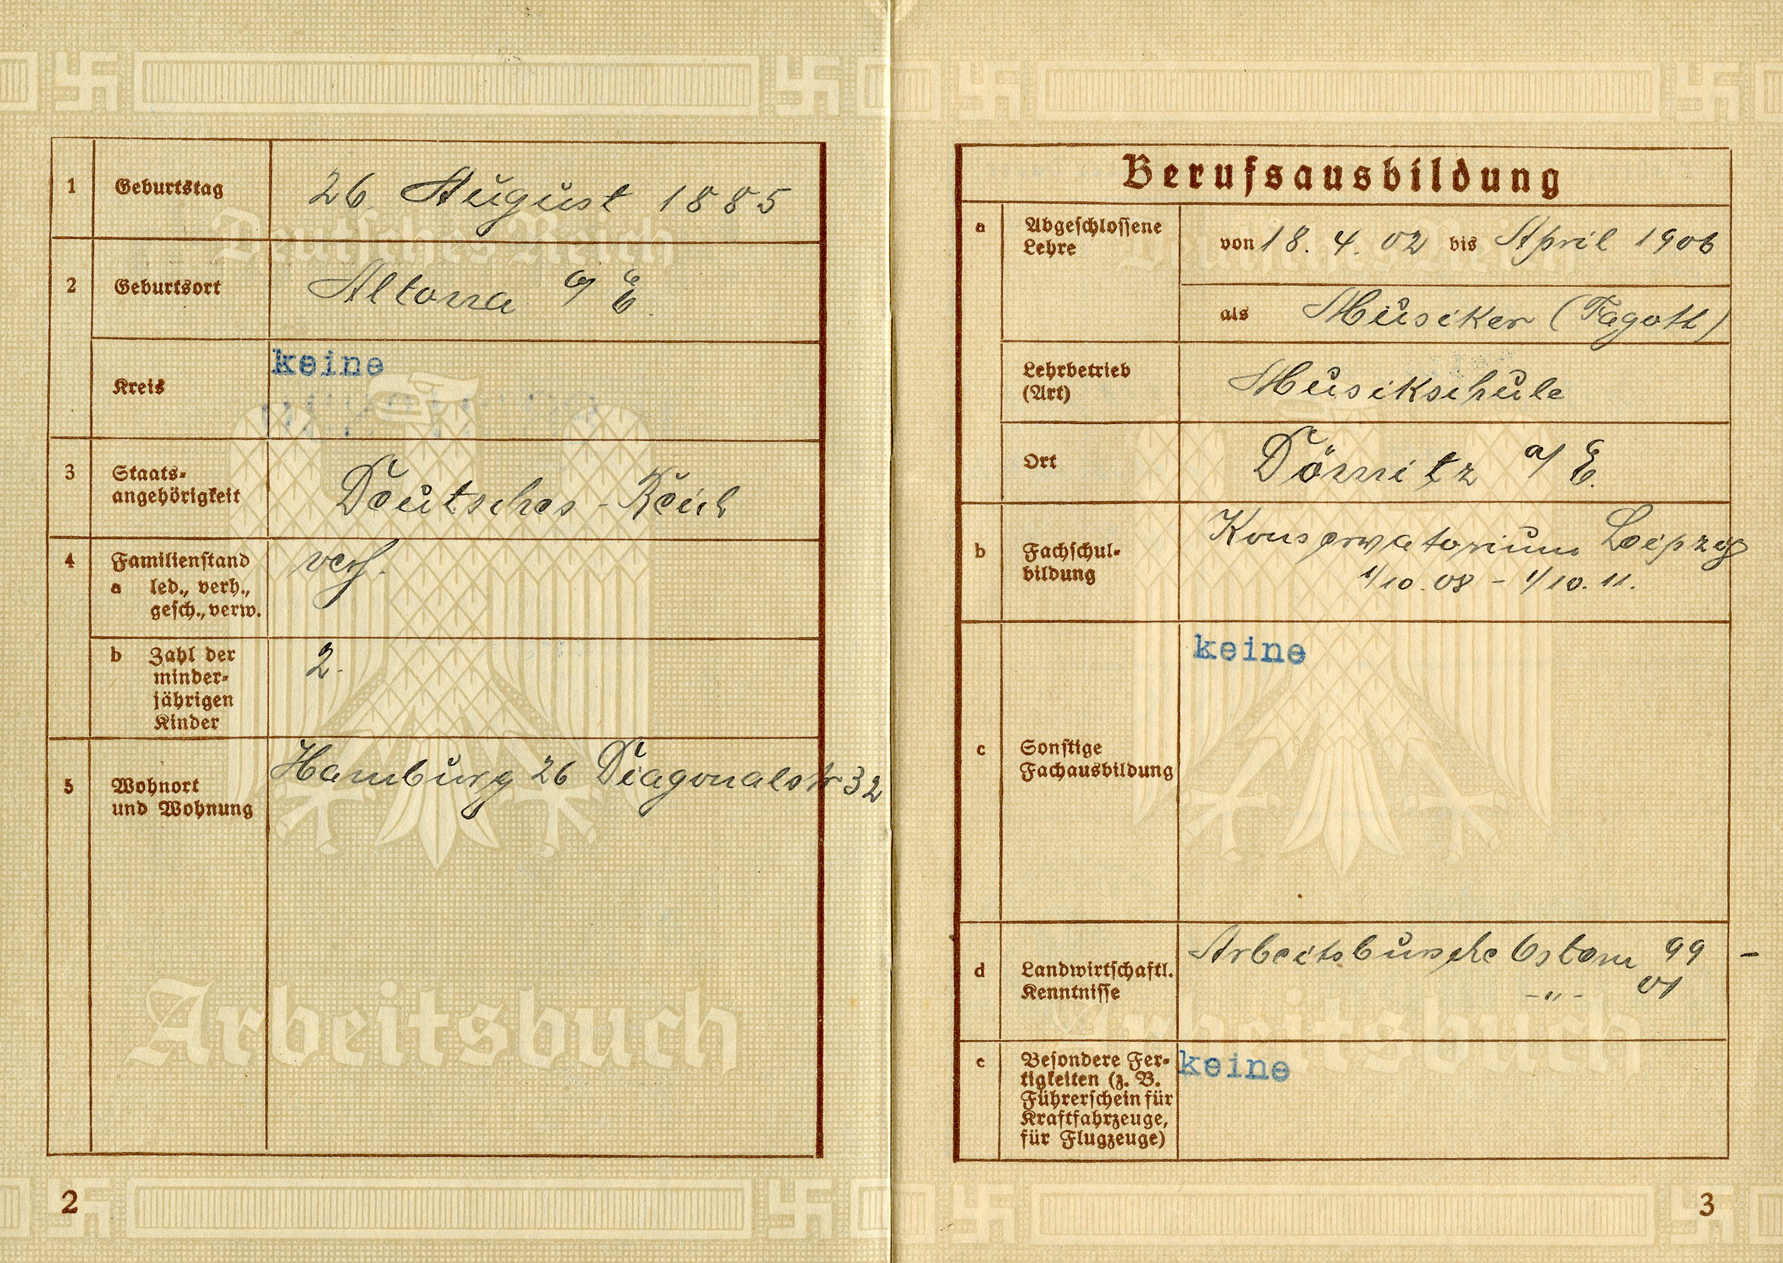 Deutsches Reich
1 Geburtstag 26 August 1885
2 Geburtsort Altona a/E.
Kreis keine
3 Staats-
angehörigkeit Deutsches-Reich
4 Familienstand verh.
a led., verh.,
gesch., verw.
b Zahl der
minder-
jährigen
Kinder 2.
5 Wohnort
und Wohnung Hamburg 26 Diagonalstr 32
Arbeitsbuch
2
Berufsausbildung
a Abgeschlossene
Lehre von 18. 4. 02 bis April 1906
als Musiker (Fagott)
Lehrbetrieb
(Art) Musikschule
Ort Dömitz a/E.
b Fachschul-
bildung Konservatorium Leipzig
1/10. 08 - 1/10. 11.
c Sonstige
Fachausbildung keine
d Landwirtschaftl.
Kenntnisse Arbeitsbursche Ostern 99 -
-"- 01
Arbeitsbuch
e Besondere Fer-
tigkeiten (z. B.
Führerschein für
Kraftfahrzeuge,
für Flugzeuge) keine
3